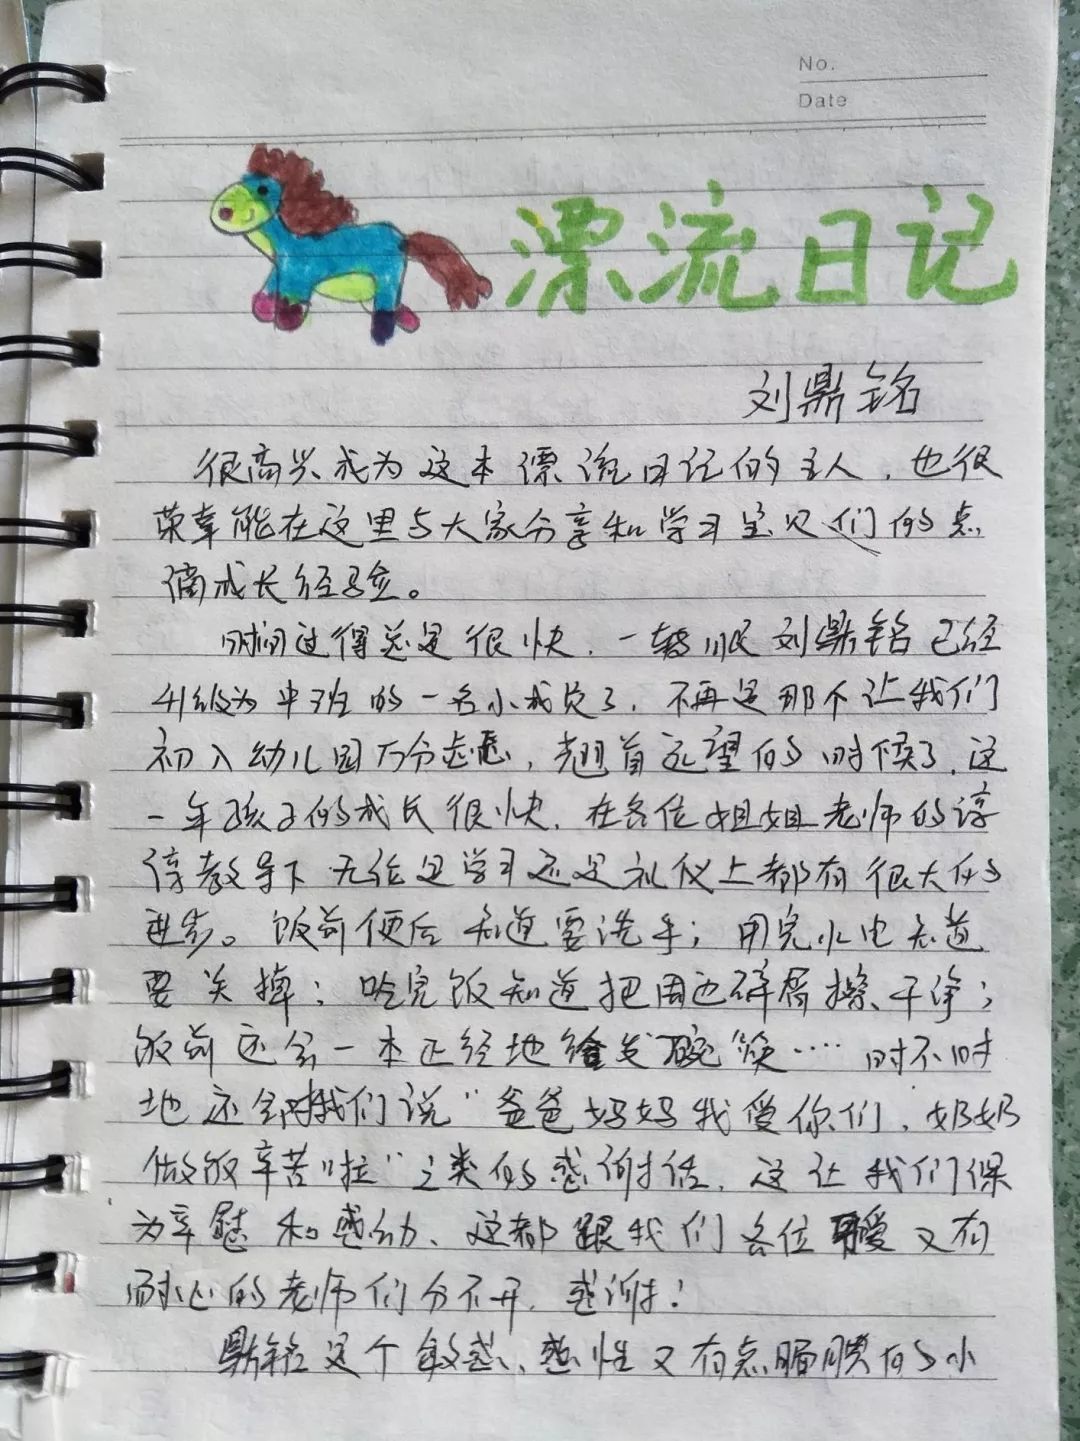 No.
Date
漂流日记
刘鼎铭
很高兴成为这本漂流日记的主人，也很
荣幸能在这里与大家分享和学习宝贝们的点
滴成长经验。
时间过得总是很快，一转眼刘鼎铭已经
升级为中班的一名小成员了，不再是那个让我们
初入幼儿园万分焦虑，翘首远望的时候了，这
一年孩子的成长很快，在各位姐姐老师的谆
谆教导下无论是学习还是礼仪上都有很大的
进步。饭前便后知道要洗手；用完水电知道
要关掉；吃完饭知道把周边碎屑擦干净；
饭前还会一本正经地给发碗筷……时不时
地还会对我们说“爸爸妈妈我爱你们，奶奶
做饭辛苦啦”之类的感谢话，这让我们倍
为欣慰和感动、这都跟我们各位可爱又有
耐心的老师们分不开，感谢！
鼎铭这个敏感、感性又有点腼腆的小